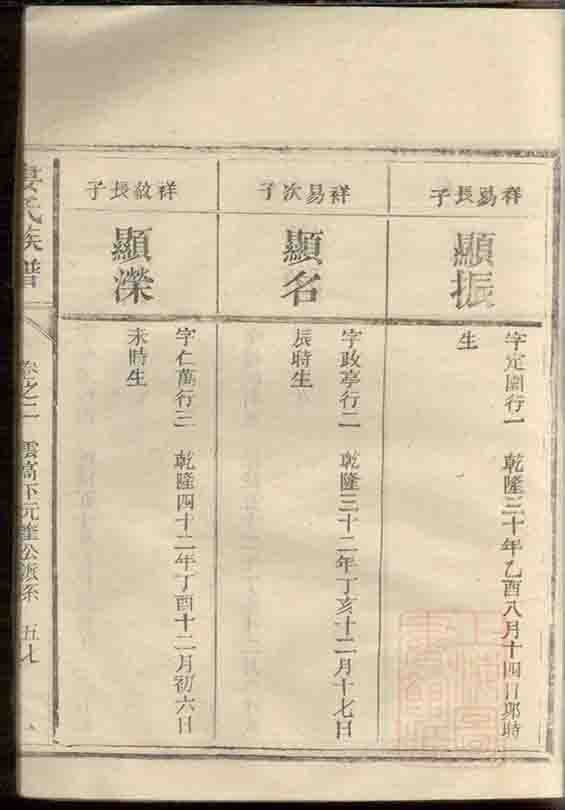 祥易長子
顯振
字定國行一 乾隆三十年乙酉八月十四日卯時
生
祥易次子
顯名
字政亭行二 乾隆三十二年丁亥十二月十七日
辰時生
祥敘長子
顯濚
字仁萬行三 乾隆四十二年丁酉十二月初六日
未時生
氏族譜
卷之二 雲高下元
公派系 五七